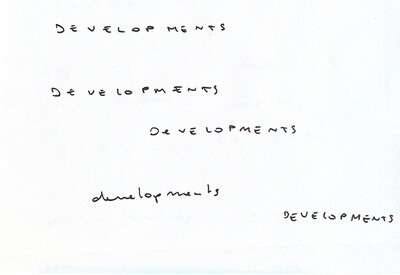 DEVELOPMENTS
DEVELOPMENTS
DEVELOPMENTS
developments
DEVELOPMENTS